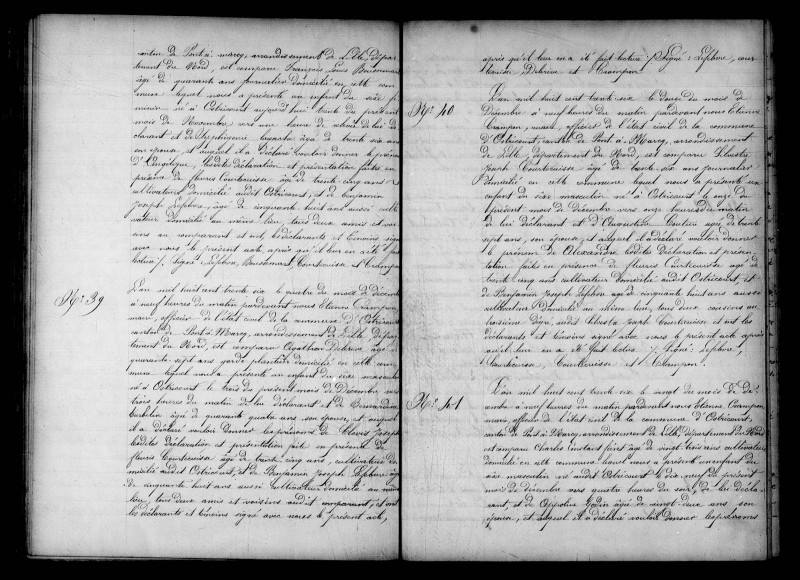 canton de Pont-à-marcq, arrondissement de Lille, dépar-
tement du Nord, est comparu François Louis Buisemart
âgé de quarante ans journalier domicilié en cette com-
mune lequel nous a présenté un enfant du sexe fé-
minin né à Ostricourt aujourd'hui trente du présent
mois de Novembre vers une heure de de lui dé-
clarant et de âgée de trente six ans
son épouse, et auquel il a déclaré vouloir donner le prénom
d'Angélique, lesdites déclaration et présentation faites en
présence de fleuris Courtecuisse âgé de trente cinq ans
cultivateur domicilié audit Ostricourt, et de Benjamin
Joseph Lefebvre, âgé de cinquante huit ans aussi culti-
vateur domicilié au même lieu, tous deux amis et voi-
sins au comparant et ont les déclarants et témoins signé
avec nous le présent acte, après qu'il leur en a été fait
lecture. Signé Lefebvre, Buisemart, Courtecuisse et Crampon
N°: 39
L'an mil huit cent trente six le quatre du mois de décembre
à neuf heures du matin pardevant nous Etienne Crampon
maire, officier de l'état civil de la commune d'Ostricourt
canton de Pont-à-Marcq, arrondissement de Lille, dépar-
tement du Nord, est comparu Agathon Delerue âgé de
quarante sept ans garde domicilié en cette com-
mune lequel nous a présenté un enfant du sexe masculin
né à Ostricourt le trois du présent mois de Décembre vers
trois heures du matin de lui déclarant et de Bernardine
âgée de quarante quatre ans son épouse, et auquel
il a déclaré vouloir donner les prénoms de Joseph
lesdites déclaration et présentation faites en présence de
fleuris Courtecuisse âgé de trente cinq ans, cultivateur do-
micilié audit Ostricourt, et de Benjamin Joseph Lefebvre âgé
de cinquante huit ans aussi cultivateur domicilié au même
lieu, tous deux amis et voisins audit comparant, et ont
les déclarants et témoins signé avec nous le présent acte,
après qu'il leur en a été fait lecture. Signé: Lefebvre, cour-
tecuisse Delerue et Crampon.
N°: 40
L'an mil huit cent trente six le douze du mois de
Décembre à neuf heures du matin pardevant nous Etienne
Crampon, maire, officier de l'état civil de la commune
d'Ostricourt, canton de Pont-à-Marcq, arrondissement
de Lille, département du Nord, est comparu
Joseph Courtecuisse âgé de trente six ans journalier
domicilié en cette commune lequel nous a présenté un
enfant du sexe masculin né à Ostricourt le onze du
présent mois de Décembre vers onze heures du matin
de lui déclarant et d'Augustine âgée de trente
sept ans, son épouse, et auquel il a déclaré vouloir donner
le prénom de Alexandre, lesdites Déclaration et présen-
tation faites en présence de fleuris Courtecuisse âgé de
trente cinq ans cultivateur domicilié audit Ostricourt, et
de Benjamin Joseph Lefebvre âgé de cinquante huit ans aussi
cultivateur domicilié au même lieu, tous deux cousins ou
voisins dudit Joseph Courtecuisse et ont les
déclarants et témoins signé avec nous le présent acte après
qu'il leur en a été fait lecture. Signé: Lefebvre,
Courtecuisse, Courtecuisse et Crampon.
N°: 41
L'an mil huit cent trente six le vingt du mois de dé-
cembre à neuf heures du matin pardevant nous Etienne Crampon
maire, officier de l'état civil de la commune d'Ostricourt,
canton de Pont-à-Marcq, arrondissement de Lille, département du Nord
est comparu Charles âgé de vingt trois ans cultivateur
domicilié en cette commune lequel nous a présenté un enfant du
sexe masculin né audit Ostricourt le dix neuf du présent
mois de décembre vers quatre heures du soir, de lui décla-
rant, et de Godin âgée de vingt deux ans son
épouse, et auquel il a déclaré vouloir donner les prénoms